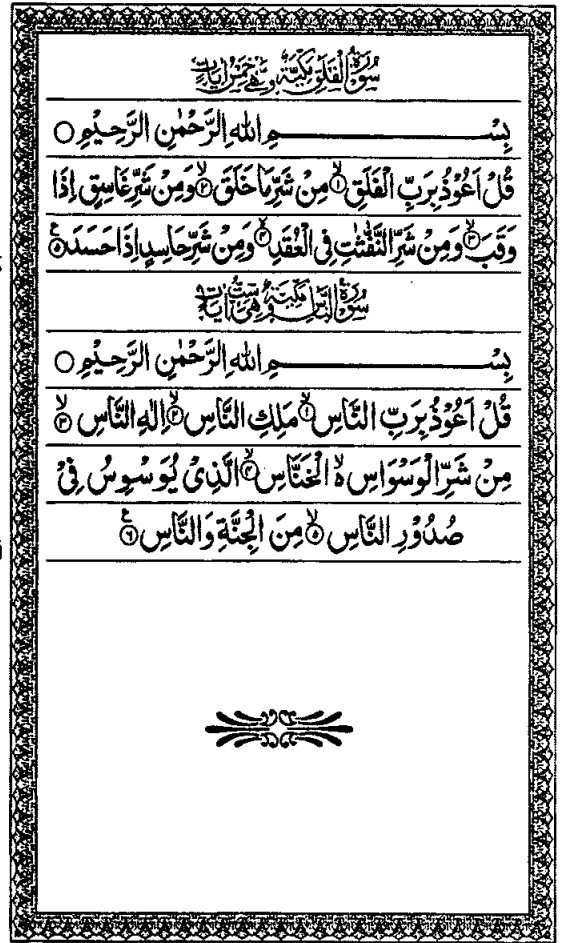 سُوْرَةُ الْفَلَقِ مَكِّيَّةٌ وَّهِيَ خَمْسُ اٰيَاتٍ
بِسْــــــــــــــــمِ اللهِ الرَّحْمٰنِ الرَّحِيْمِ ○
قُلْ اَعُوْذُ بِرَبِّ الْفَلَقِ ۙ﴿۱﴾ مِنْ شَرِّ مَا خَلَقَ ۙ﴿۲﴾ وَمِنْ شَرِّ غَاسِقٍ اِذَا
وَقَبَ ۙ﴿۳﴾ وَمِنْ شَرِّ النَّفّٰثٰتِ فِی الْعُقَدِ ۙ﴿۴﴾ وَمِنْ شَرِّ حَاسِدٍ اِذَا حَسَدَ ﴿۵﴾ع
سُوْرَةُ النَّاسِ مَكِّيَّةٌ وَّهِيَ سِتُّ اٰيَاتٍ
بِسْــــــــــــــــمِ اللهِ الرَّحْمٰنِ الرَّحِيْمِ ○
قُلْ اَعُوْذُ بِرَبِّ النَّاسِ ۙ﴿۱﴾ مَلِكِ النَّاسِ ۙ﴿۲﴾ اِلٰهِ النَّاسِ ۙ﴿۳﴾
مِنْ شَرِّ الْوَسْوَاسِ ۙ۬ الْخَنَّاسِ ۙ﴿۴﴾ الَّذِیْ یُوَسْوِسُ فِیْ
صُدُوْرِ النَّاسِ ۙ﴿۵﴾ مِنَ الْجِنَّةِ وَالنَّاسِ ﴿۶﴾ع